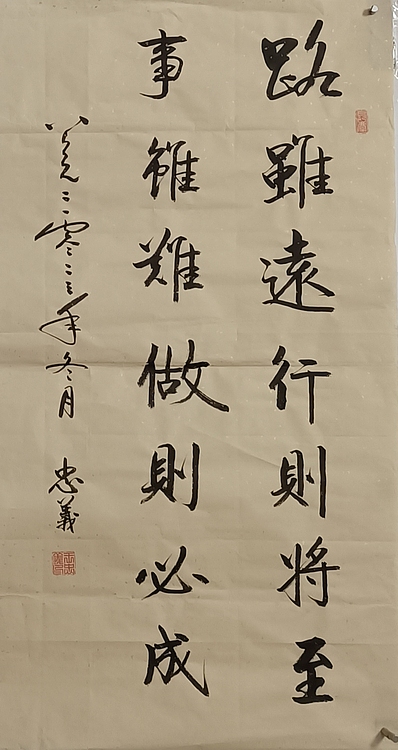 路雖遠行則將至
事雖難做則必成
公元二零二三年冬月 忠義